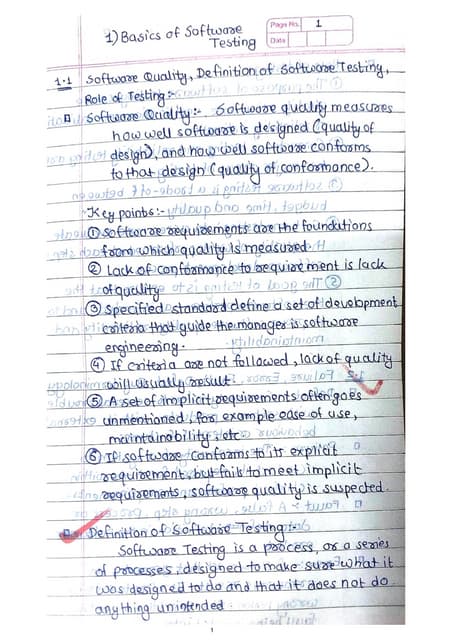 Page No. 1
Date
1) Basics of Software
Testing
1.1 Software Quality, Definition of Software Testing,
Role of Testing:-
Software Quality:- Software quality measures
how well software is designed (quality of
design), and how well software conforms
to that design (quality of conformance).
Key points:-
① Software requirements are the foundations
from which quality is measured.
② Lack of conformance to requirement is lack
of quality
③ Specified standard define a set of development
criteria that guide the manager is software
engineering.
④ If criteria are not followed, lack of quality
will usually result.
⑤ A set of implicit requirements often goes
unmentioned, for example ease of use,
maintainability, etc
⑥ If software conforms to its explicit
requirement, but fails to meet implicit
requirements, software quality is suspected.
Definition of Software Testing:-
Software Testing is a process, or a series
of processes, designed to make sure what it
was designed to do and that it does not do
anything unintended.
1